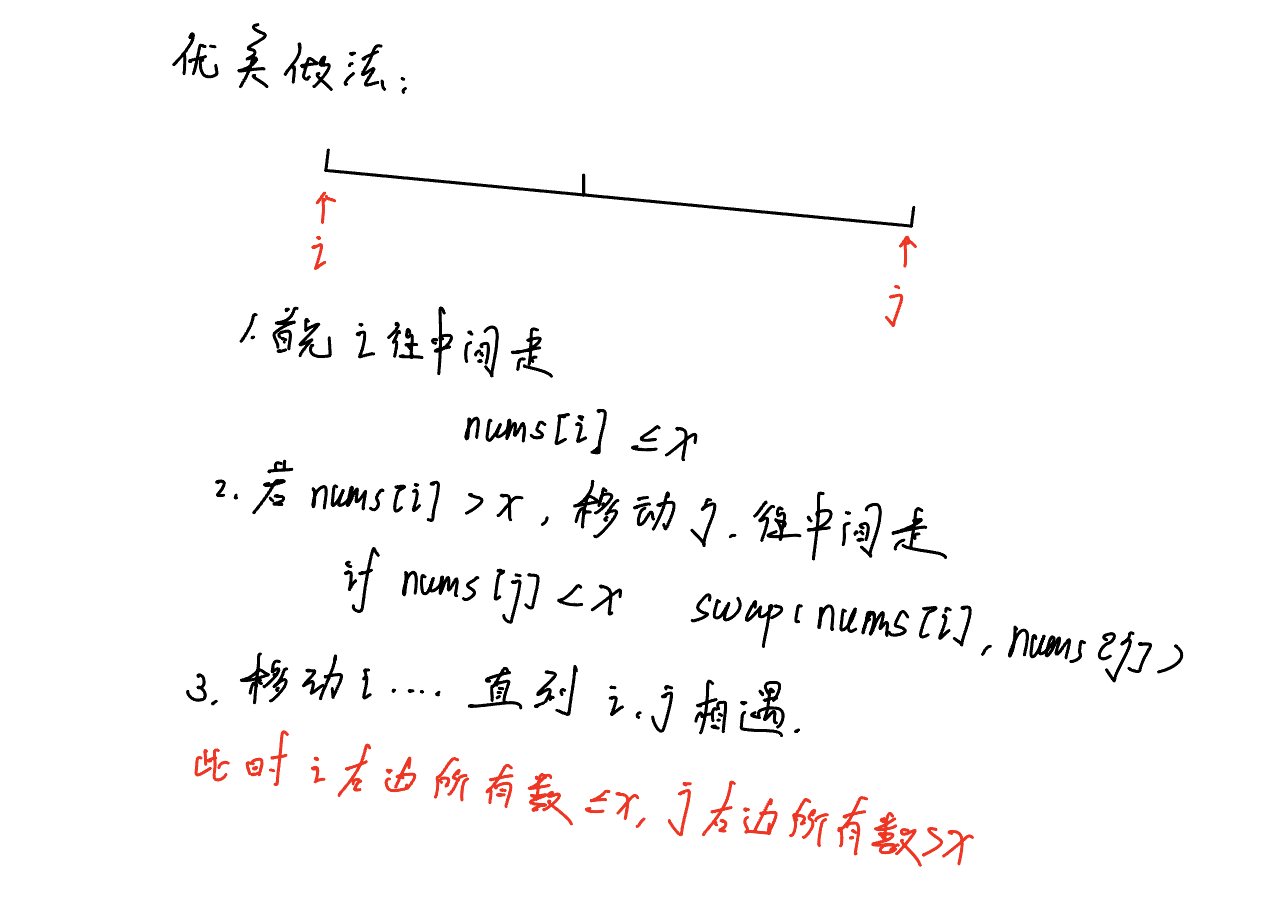 优美做法:
i
j
1. 首先 i 往中间走
nums[i] ≤ x
2. 若 nums[i] > x, 移动 j. 往中间走
if nums[j] < x swap(nums[i], nums[j])
3. 移动 i .... 直到 i.j 相遇.
此时 i 右边所有数 ≤ x, j 右边所有数 > x